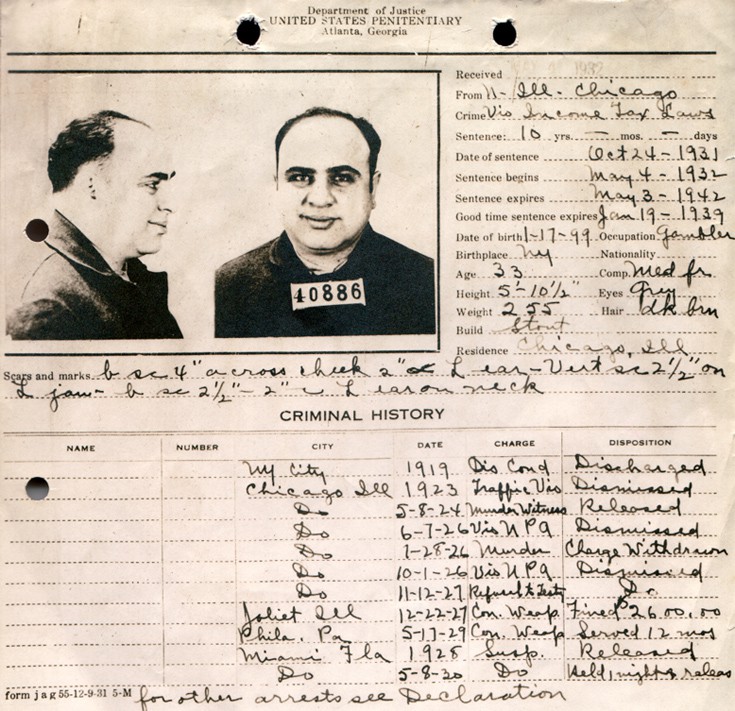 Department of Justice
UNITED STATES PENITENTIARY
Atlanta, Georgia
Received
From N- Ill- Chicago
Crime Vio Income Tax Laws
Sentence: 10 yrs. — mos. — days
Date of sentence Oct 24-1931
Sentence begins May 4-1932
Sentence expires May 3-1942
Good time sentence expires Jan 19-1939
Date of birth 1-17-99 Occupation Gambler
Birthplace NY Nationality
Age 33 Comp. Med fr
Height 5'-10½" Eyes Grey
Weight 255 Hair dk brn
Build Stout
Residence Chicago, Ill
40886
Scars and marks b sc 4" across cheek 2" L ear-Vert sc 2½" on
L jaw- b sc 2½"-2" L ear on neck
CRIMINAL HISTORY
NAME NUMBER CITY DATE CHARGE DISPOSITION
NY City 1919 Dis. Cond Discharged
Chicago Ill 1923 Traffic Vio Dismissed
Do 5-8-24 Murder Witness Released
Do 6-7-26 Vio N P A Dismissed
Do 7-28-26 Murder Charge Withdrawn
Do 10-1-26 Vio N P A Dismissed
Do 11-12-27 Refused to Testy Do
Joliet Ill 12-22-27 Con. Weap Fined $26.00.00
Phila. Pa 5-17-29 Con. Weap Served 12 mos
Miami Fla 1928 Susp. Released
Do 5-8-30 Do Held, night & releas
form j a g 55-12-9-31 5-M for other arrests see Declaration